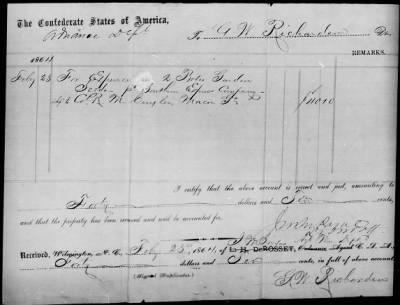 The Confederate States of America,
Ordnance Dept
To G W Richardson Dr.
REMARKS.
1864
Feby 23 For Expenses on 2 Boxes
pr Southern Express Company
Macon Ga $40 10
I certify that the above account is correct and just, amounting to
Forty dollars and Ten cents,
and that the property has been received and will be accounted for.
Received, Wilmington, N. C., Feby 23 1864, of L. H. DeROSSET, Ordnance Agent C. S. A.
Forty dollars and Ten cents, in full of above account.
(Signed Duplicates.)
G. W. Richardson